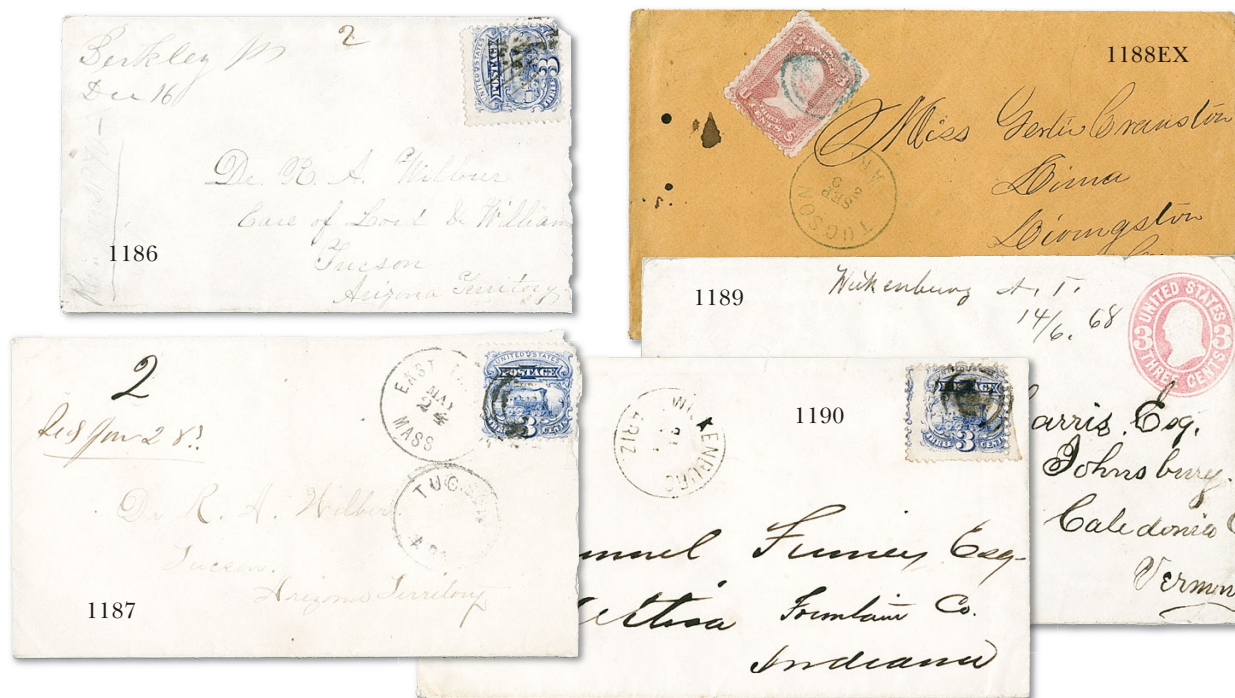 2
Berkley
Dec 16
UNITED STATES
POSTAGE
3
Dr. R. A. Wilbur
Care of Lord & William
Tucson
Arizona Territory
1186
1188EX
3
CENTS
Miss Gertie Cranston
Lima
Livingston
TUCSON
SEP
3
1189
Wickenburg A. T.
14/6. 68
UNITED STATES
3 3
THREE CENTS
arris. Esq.
Johnsbury.
Caledonia
Vermon
2
EAST
MAY
24
MASS
UNITED STATES
POSTAGE
3
TUCSON
Dr R. A. Wilbur
Tucson.
Arizona Territory
1187
1190
WICKENBURG
ARIZ
POSTAGE
3
muel Finney Esq-
Fountain Co.
Indiana